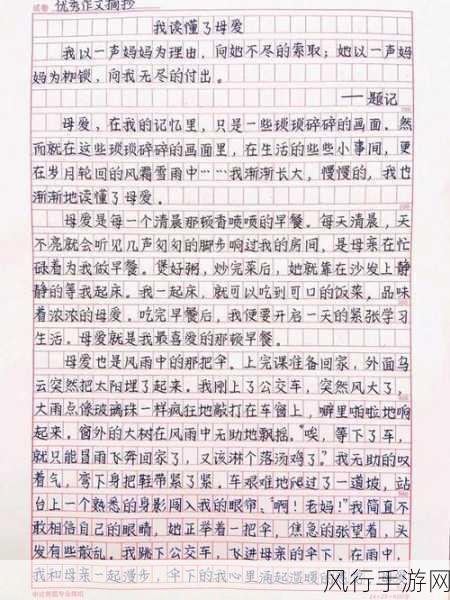 试卷 优秀作文摘抄
我读懂了母爱
我以一声妈妈为理由，向她不尽的索取；她以一声妈
妈为枷锁，向我无尽的付出。
——题记
母爱，在我的记忆里，只是一些琐琐碎碎的画面。然
而就在这些琐琐碎碎的画面里，在生活的些些小事间，更
在岁月轮回的风霜雪雨中……我渐渐长大，慢慢的，我也
渐渐地读懂了母爱。
母爱是每一个清晨那顿香喷喷的早餐。每天清晨，天
不亮就会听见几声匆匆的脚步响过我的房间，是母亲在忙
碌着为我做早餐。煲好粥，炒完菜后，她就靠在沙发上静
静的等我起床。我一起床，就可以吃到可口的饭菜，品味
着浓浓的母爱。吃完早餐后，我便要开启一天的紧张学习
生活。母爱就是我最喜爱的那顿早餐。
母爱也是风雨中的那把伞。上完课准备回家，外面乌
云突然把太阳埋了起来。我刚上了公交车，突然风大了，
大雨点像玻璃珠一样疯狂地敲打在车窗上，噼里啪啦地响
起来。窗外的大树在风雨中无助地飘摇。“唉，等下了车，
就只能冒雨飞奔回家了，又该淋个落汤鸡了。”我无助的叹
着气，弯下身把鞋带紧了紧。车艰难地爬过了一道坡，站
台上一个熟悉的身影闯入我的眼帘，“啊！老妈！”我简直不
敢相信自己的眼睛，她正举着一把伞，焦急的张望着，头
发有些散乱。我跳下公交车，飞进母亲的伞下。在雨中，
我和母亲一起漫步，伞下的我心里涌起温暖的
风行手游网